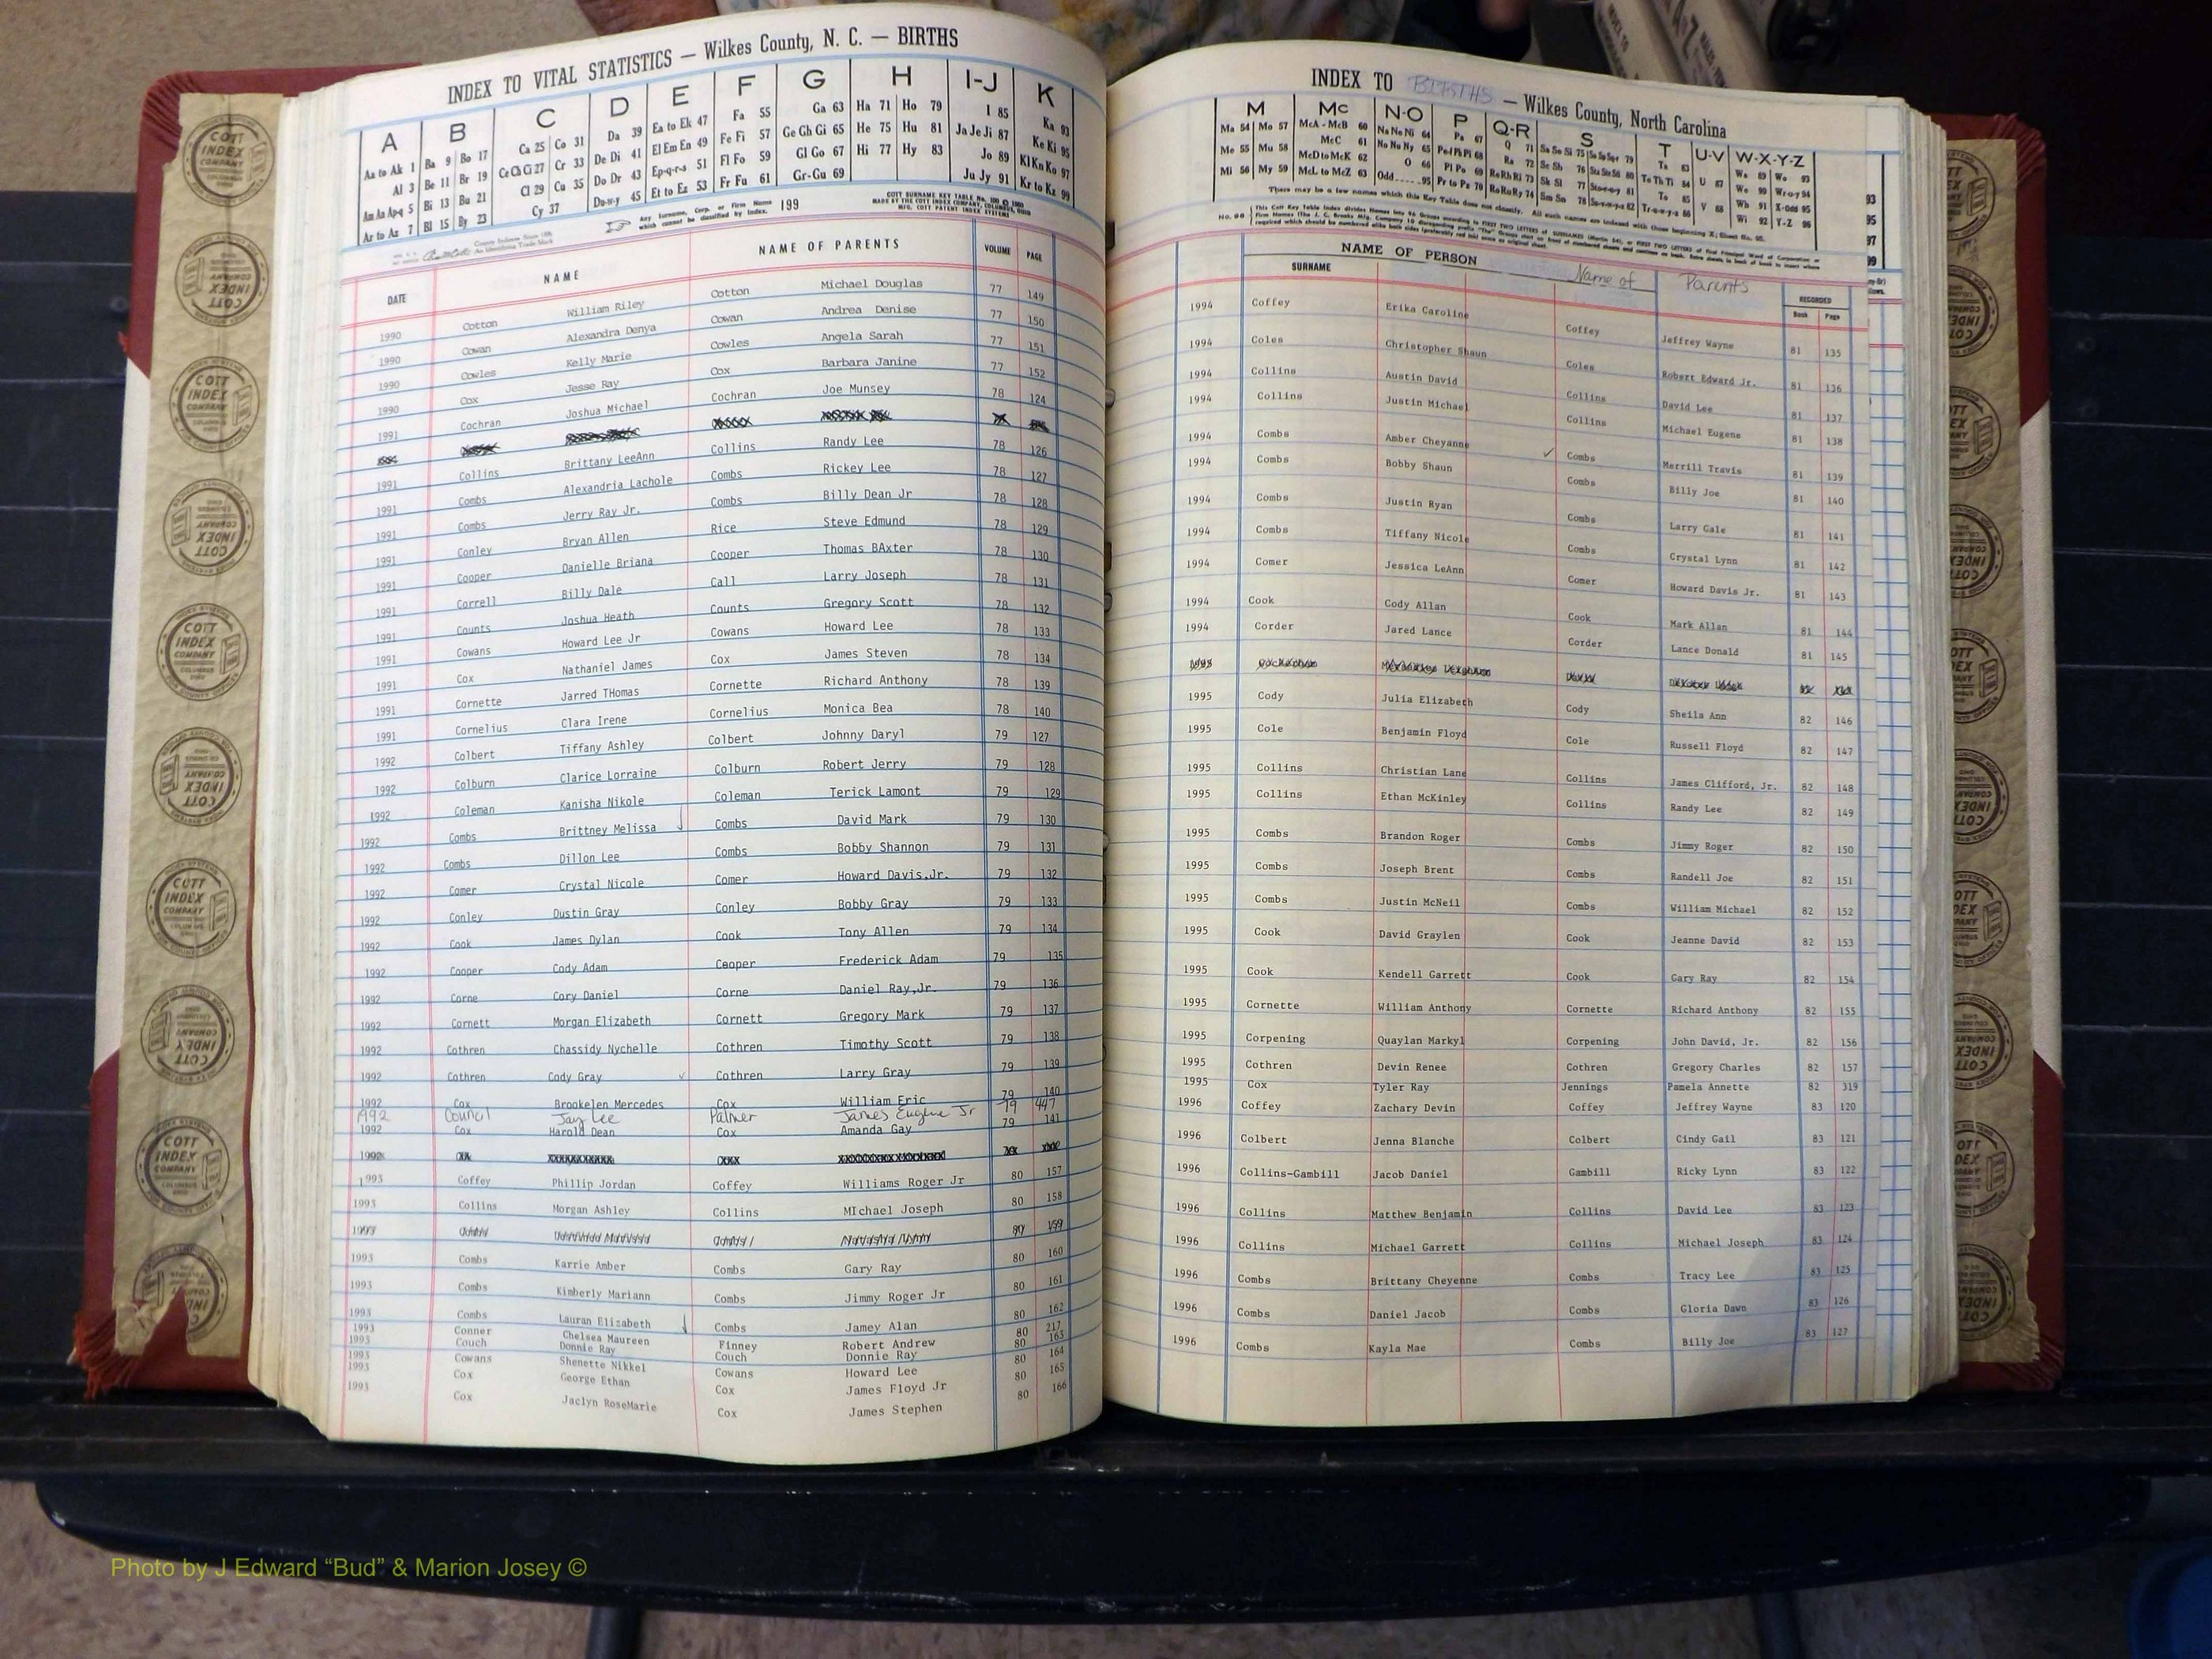 INDEX TO VITAL STATISTICS — Wilkes County, N. C. — BIRTHS
A B C D E F G H I-J K
Aa to Ak 1 Ba 9 Bo 17 Ca 25 Co 31 Da 39 Ea to Ek 47 Fa 55 Ga 63 Ha 71 Ho 79 I 85 Ka 93
Al 3 Be 11 Br 19 Ce Ch Ci 27 Cr 33 De Di 41 El Em En 49 Fe Fi 57 Ge Gh Gi 65 He 75 Hu 81 Ja Je Ji 87 Ke Ki 95
Am An Ap-q 5 Bi 13 Bu 21 Cl 29 Cu 35 Do Dr 43 Ep-q-r-s 51 Fl Fo 59 Gl Go 67 Hi 77 Hy 83 Jo 89 Kl Kn Ko 97
Ar to Az 7 Bl 15 By 23 Cy 37 Du-w-y 45 Et to Ez 53 Fr Fu 61 Gr-Gu 69 Ju Jy 91 Kr to Kz 99
Any Surname, Corp. or Firm Name which cannot be classified by Index. 199
COTT SURNAME KEY TABLE
MADE BY THE COTT INDEX COMPANY, COLUMBUS, OHIO
MFG. COTT PATENT INDEX SYSTEMS
DATE NAME NAME OF PARENTS VOLUME PAGE
1990 Cotton William Riley Cotton Michael Douglas 77 149
1990 Cowan Alexandra Denya Cowan Andrea Denise 77 150
1990 Cowles Kelly Marie Cowles Angela Sarah 77 151
1990 Cox Jesse Ray Cox Barbara Janine 77 152
1991 Cochran Joshua Michael Cochran Joe Munsey 78 124
1991 Collins Brittany LeeAnn Collins Randy Lee 78 126
1991 Combs Alexandria Lachole Combs Rickey Lee 78 127
1991 Combs Jerry Ray Jr. Combs Billy Dean Jr 78 128
1991 Conley Bryan Allen Rice Steve Edmund 78 129
1991 Cooper Danielle Briana Cooper Thomas BAxter 78 130
1991 Correll Billy Dale Call Larry Joseph 78 131
1991 Counts Joshua Heath Counts Gregory Scott 78 132
1991 Cowans Howard Lee Jr Cowans Howard Lee 78 133
1991 Cox Nathaniel James Cox James Steven 78 134
1991 Cornette Jarred THomas Cornette Richard Anthony 78 139
1991 Cornelius Clara Irene Cornelius Monica Bea 78 140
1992 Colbert Tiffany Ashley Colbert Johnny Daryl 79 127
1992 Colburn Clarice Lorraine Colburn Robert Jerry 79 128
1992 Coleman Kanisha Nikole Coleman Terick Lamont 79 129
1992 Combs Brittney Melissa Combs David Mark 79 130
1992 Combs Dillon Lee Combs Bobby Shannon 79 131
1992 Comer Crystal Nicole Comer Howard Davis,Jr. 79 132
1992 Conley Dustin Gray Conley Bobby Gray 79 133
1992 Cook James Dylan Cook Tony Allen 79 134
1992 Cooper Cody Adam Cooper Frederick Adam 79 135
1992 Corne Cory Daniel Corne Daniel Ray,Jr. 79 136
1992 Cornett Morgan Elizabeth Cornett Gregory Mark 79 137
1992 Cothren Chassidy Nychelle Cothren Timothy Scott 79 138
1992 Cothren Cody Gray ✓ Cothren Larry Gray 79 139
1992 Cox Brookelen Mercedes Cox William Eric 79 140
1992 Council Jay Lee Palmer James Eugene Jr 79 447
1992 Cox Harold Dean Cox Amanda Gay 79 141
1993 Coffey Phillip Jordan Coffey Williams Roger Jr 80 157
1993 Collins Morgan Ashley Collins MIchael Joseph 80 158
1993 Combs Karrie Amber Combs Gary Ray 80 160
1993 Combs Kimberly Mariann Combs Jimmy Roger Jr 80 161
1993 Combs Lauran Elizabeth Combs Jamey Alan 80 162
1993 Conner Chelsea Maureen Finney Robert Andrew 80 217
1993 Couch Donnie Ray Couch Donnie Ray 80 163
1993 Cowans Shenette Nikkel Cowans Howard Lee 80 164
1993 Cox George Ethan Cox James Floyd Jr 80 165
1993 Cox Jaclyn RoseMarie Cox James Stephen 80 166
INDEX TO BIRTHS — Wilkes County, North Carolina
M Mc N-O P Q-R S T U-V W-X-Y-Z
Ma 54 Mo 57 McA - McB 60 Na Ne Ni 64 Pa 67 Q 71 Sa Sc Si 75
Me 55 Mu 58 McC 61 No Nu Ny 65 Ra 72
Mi 56 My 59 McD to McK 62 O 66 Re Rh Ri 73
McL to McZ 63 Odd 95 Pr to Pz 70 Ro Ru Ry 74
There may be a few names which this Key Table does not classify.
NAME OF PERSON Name of Parents RECORDED
SURNAME Book Page
1994 Coffey Erika Caroline Coffey Jeffrey Wayne 81 135
1994 Coles Christopher Shaun Coles Robert Edward Jr. 81 136
1994 Collins Austin David Collins David Lee 81 137
1994 Collins Justin Michael Collins Michael Eugene 81 138
1994 Combs Amber Cheyanne ✓ Combs Merrill Travis 81 139
1994 Combs Bobby Shaun Combs Billy Joe 81 140
1994 Combs Justin Ryan Combs Larry Gale 81 141
1994 Combs Tiffany Nicole Combs Crystal Lynn 81 142
1994 Comer Jessica LeAnn Comer Howard Davis Jr. 81 143
1994 Cook Cody Allan Cook Mark Allan 81 144
1994 Corder Jared Lance Corder Lance Donald 81 145
1995 Cody Julia Elizabeth Cody Sheila Ann 82 146
1995 Cole Benjamin Floyd Cole Russell Floyd 82 147
1995 Collins Christian Lane Collins James Clifford, Jr. 82 148
1995 Collins Ethan McKinley Collins Randy Lee 82 149
1995 Combs Brandon Roger Combs Jimmy Roger 82 150
1995 Combs Joseph Brent Combs Randell Joe 82 151
1995 Combs Justin McNeil Combs William Michael 82 152
1995 Cook David Graylen Cook Jeanne David 82 153
1995 Cook Kendell Garrett Cook Gary Ray 82 154
1995 Cornette William Anthony Cornette Richard Anthony 82 155
1995 Corpening Quaylan Markyl Corpening John David, Jr. 82 156
1995 Cothren Devin Renee Cothren Gregory Charles 82 157
1995 Cox Tyler Ray Jennings Pamela Annette 82 319
1996 Coffey Zachary Devin Coffey Jeffrey Wayne 83 120
1996 Colbert Jenna Blanche Colbert Cindy Gail 83 121
1996 Collins-Gambill Jacob Daniel Gambill Ricky Lynn 83 122
1996 Collins Matthew Benjamin Collins David Lee 83 123
1996 Collins Michael Garrett Collins Michael Joseph 83 124
1996 Combs Brittany Cheyenne Combs Tracy Lee 83 125
1996 Combs Daniel Jacob Combs Gloria Dawn 83 126
1996 Combs Kayla Mae Combs Billy Joe 83 127
COTT INDEX COMPANY
Photo by J Edward “Bud” & Marion Josey ©